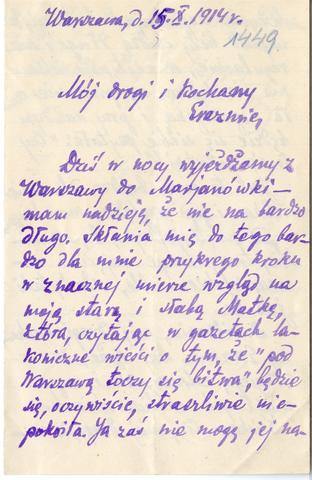 Warszawa, d. 15.X.1914 r.
1449.
Mój drogi i Kochany
Erazmie,
Dziś w nocy wyjeżdżamy z
Warszawy do Marjanówki –
mam nadzieję, że nie na bardzo
długo. Skłania mię do tego bar-
dzo dla mnie przykrego kroku
w znacznej mierze wzgląd na
moją starą i słabą Matkę,
która, czytając w gazetach la-
koniczne wieści o tym, że "pod
Warszawą toczy się bitwa", będzie
się, oczywiście, straszliwie nie-
pokoiła. Ja zaś nie mogę jej na-